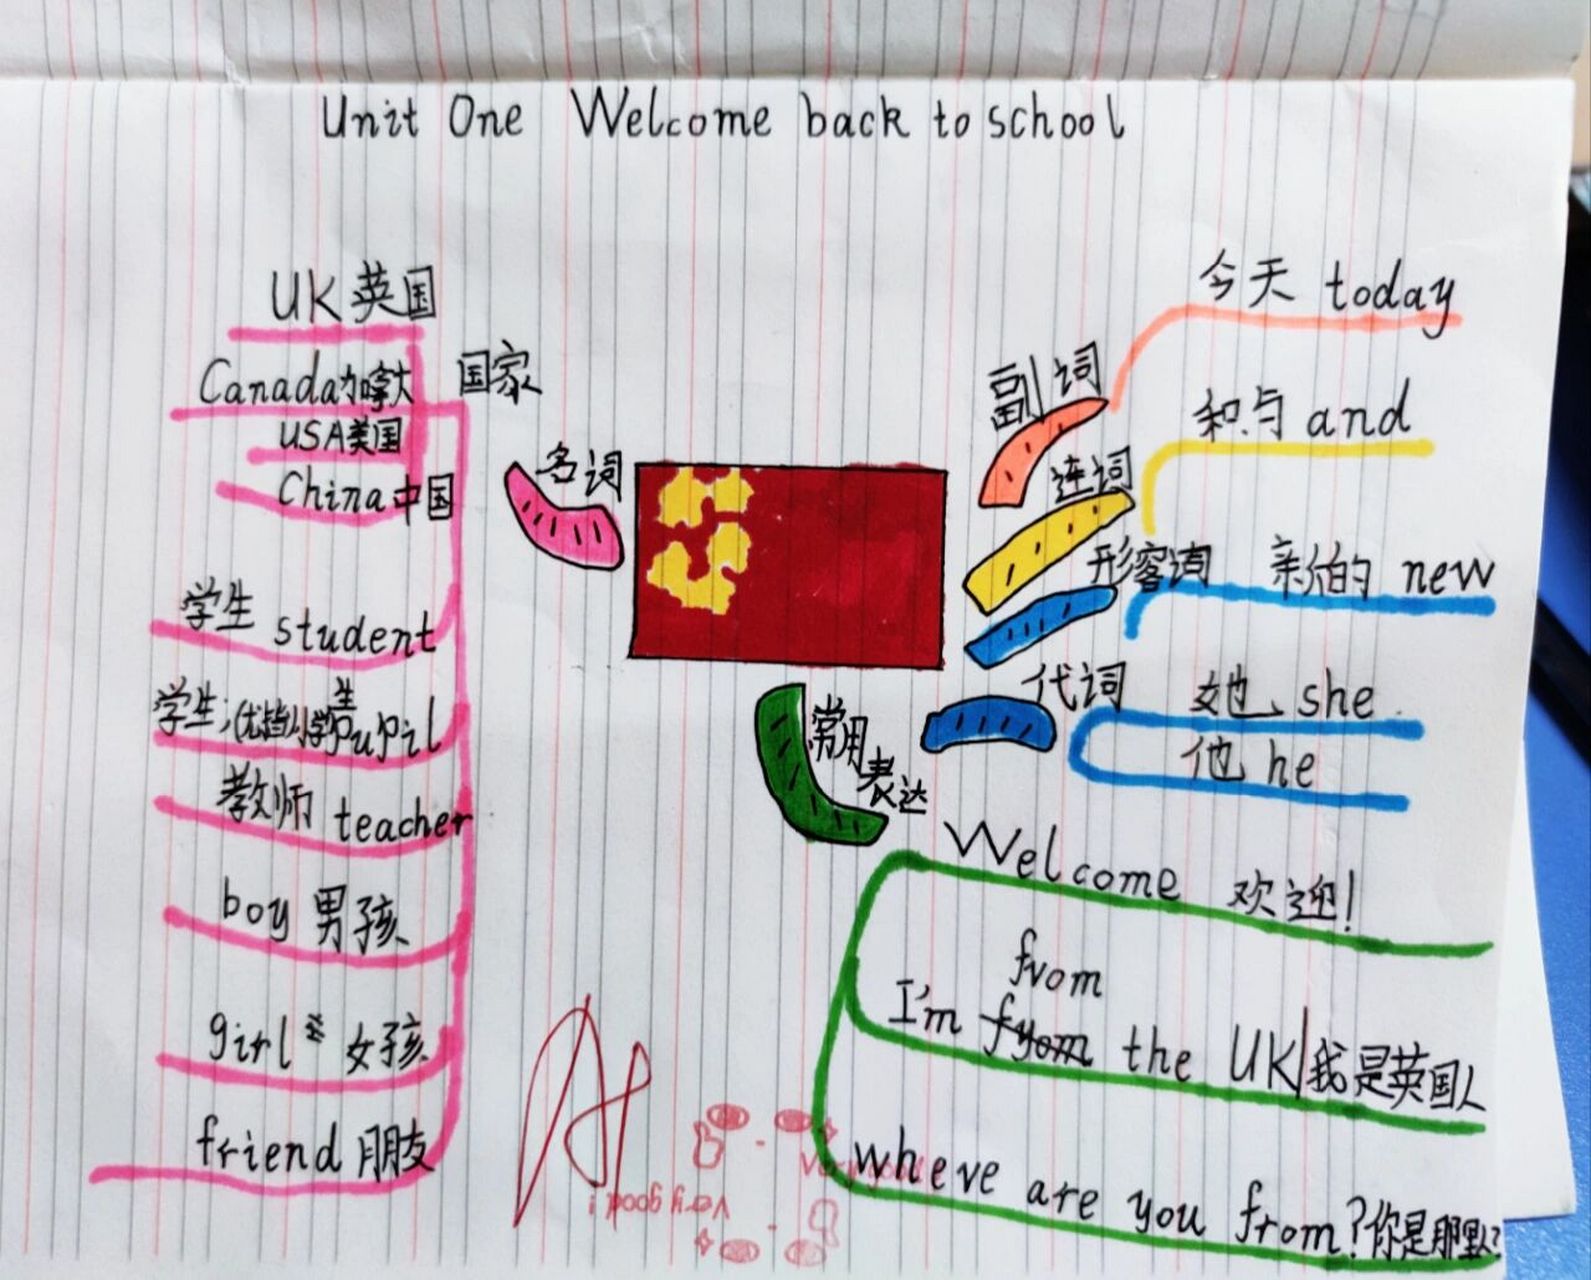 Unit One Welcome back to school
名词
国家
UK 英国
Canada加拿大
USA美国
China中国
学生 student
学生;(尤指)小学生pupil
教师 teacher
boy 男孩
girl 女孩
friend 朋友
副词
今天 today
连词
和与 and
形客词
亲伯的 new
代词
她 she
他 he
常用
表达
Welcome 欢迎!
from
I'm from the UK 我是英国人
where are you from?你是那里人?
A+
very good!
very good!